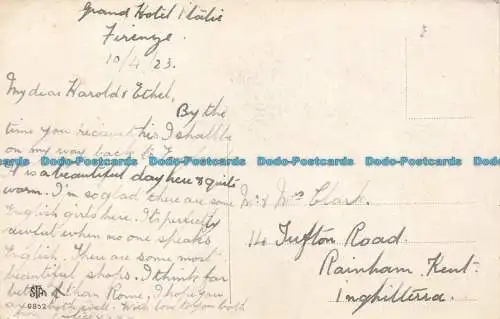 Grand Hotel Italie
Firenze.
10/4/23.
My dear Harold & Ethel,
By the
time you receive this I shall be
on my way back to
It is a beautiful day here & quite
warm. I'm so glad there are some
English girls here. It's perfectly
awful when no one speaks
English. There are some most
beautiful shops. I think far
better than Rome. I hope you
are both well. With love to you both
Mr & Mrs Clark.
14 Tufton Road.
Rainham, Kent.
Inghilterra.
0852
Dodo-Postcards
Dodo-Postcards
Dodo-Postcards
Dodo-Postcards
Dodo-Postcards
Dodo-Postcards